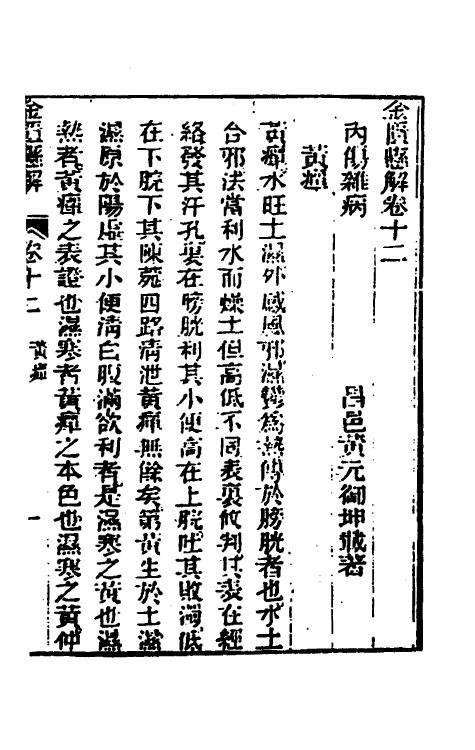 金匱懸解卷十二
內傷雜病
昌邑黃元御坤載著
黃疸
黃疸水旺土濕外感風邪濕鬱爲熱傳於膀胱者也水土
合邪法當利水而燥土但高低不同表裏攸判其表在經
絡發其汗孔裏在膀胱利其小便高在上脘吐其敗濁低
在下脘下其陳菀四路清泄黃疸無餘矣第黃生於土濕
濕原於陽虛其小便清白腹滿欲利者是濕寒之黃也濕
熱者黃疸之表證也濕寒者黃疸之本色也濕寒之黃仲
金匱懸解
卷十二
黃疸
一